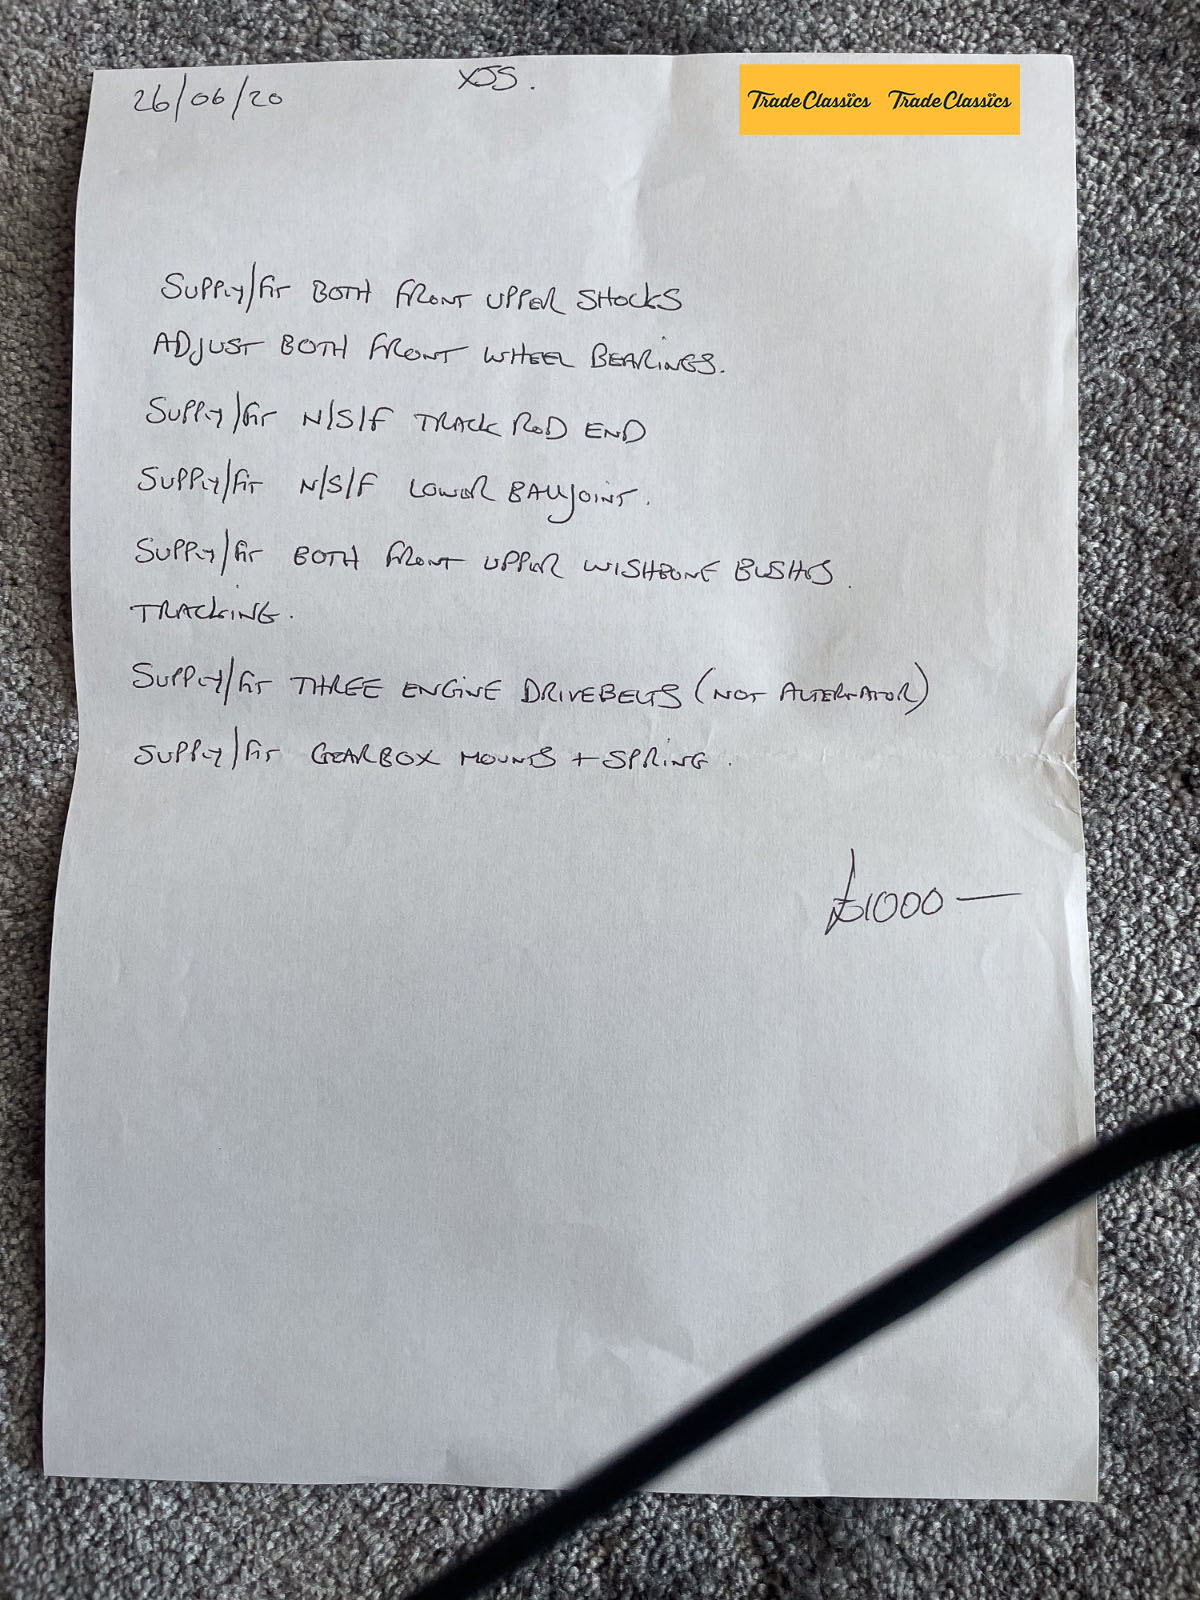 26/06/20
XJS.
TradeClassics TradeClassics
SUPPLY/FIT BOTH FRONT UPPER SHOCKS
ADJUST BOTH FRONT WHEEL BEARINGS.
SUPPLY/FIT N/S/F TRACK ROD END
SUPPLY/FIT N/S/F LOWER BALLJOINT.
SUPPLY/FIT BOTH FRONT UPPER WISHBONE BUSHES.
TRACKING.
SUPPLY/FIT THREE ENGINE DRIVEBELTS (NOT ALTERNATOR)
SUPPLY/FIT GEARBOX MOUNTS + SPRING.
£1000—